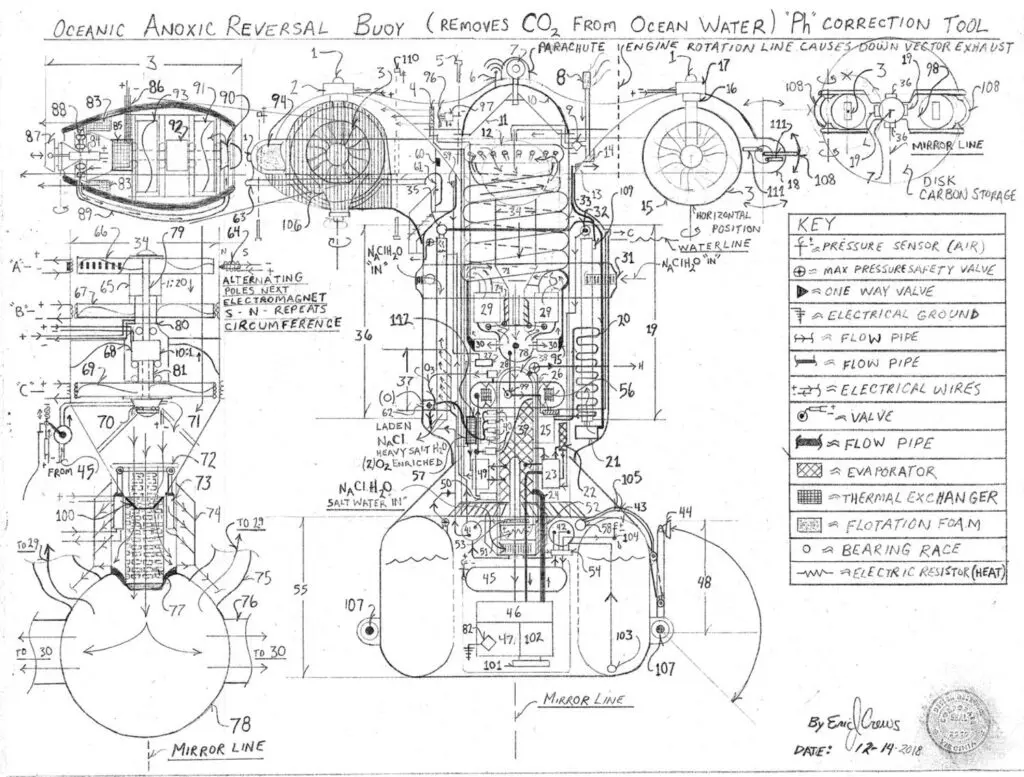 OCEANIC ANOXIC REVERSAL BUOY (REMOVES CO2 FROM OCEAN WATER) "Ph" CORRECTION TOOL
PARACHUTE
ENGINE ROTATION LINE CAUSES DOWN VECTOR EXHAUST
3
86
88
83
93
91
90
94
87
84
85
92
83
89
63
106
1
2
3
110
4
96
5
6
97
7
8
10
9
11
12
14
13
60
61
59
35
34
33
32
109
1
17
16
3
15
111
111
18
108
HORIZONTAL
POSITION
WATERLINE
C
108
3
36
19
98
108
19
36
7
MIRROR LINE
DISK
CARBON STORAGE
66
34
79
64
N
S
"A"
65
1:20
67
"B"
80
68
10:1
69
81
"C"
70
71
ALTERNATING
POLES NEXT
ELECTROMAGNET
S-N-REPEATS
CIRCUMFERENCE
FROM 45
72
73
100
74
TO 29
TO 29
75
77
76
TO 30
TO 30
78
MIRROR LINE
NaClH2O
"IN"
NaClH2O "IN"
31
29
29
20
36
112
30
30
78
27
28
38
95
H
19
37
26
99
56
(O)
62
LADEN
NaCl
HEAVY SALT H2O
(2)O2 ENRICHED
40
39
25
21
49
23
57
NaClH2O
SALT WATER "IN"
50
24
22
52
105
43
44
53
51
42
58
104
54
55
45
48
46
82
47
102
101
103
107
107
MIRROR LINE
KEY
PRESSURE SENSOR (AIR)
MAX PRESSURE SAFETY VALVE
ONE WAY VALVE
ELECTRICAL GROUND
FLOW PIPE
FLOW PIPE
ELECTRICAL WIRES
VALVE
FLOW PIPE
EVAPORATOR
THERMAL EXCHANGER
FLOTATION FOAM
BEARING RACE
ELECTRIC RESISTOR (HEAT)
By Eric J Crews
DATE: 12-14-2018